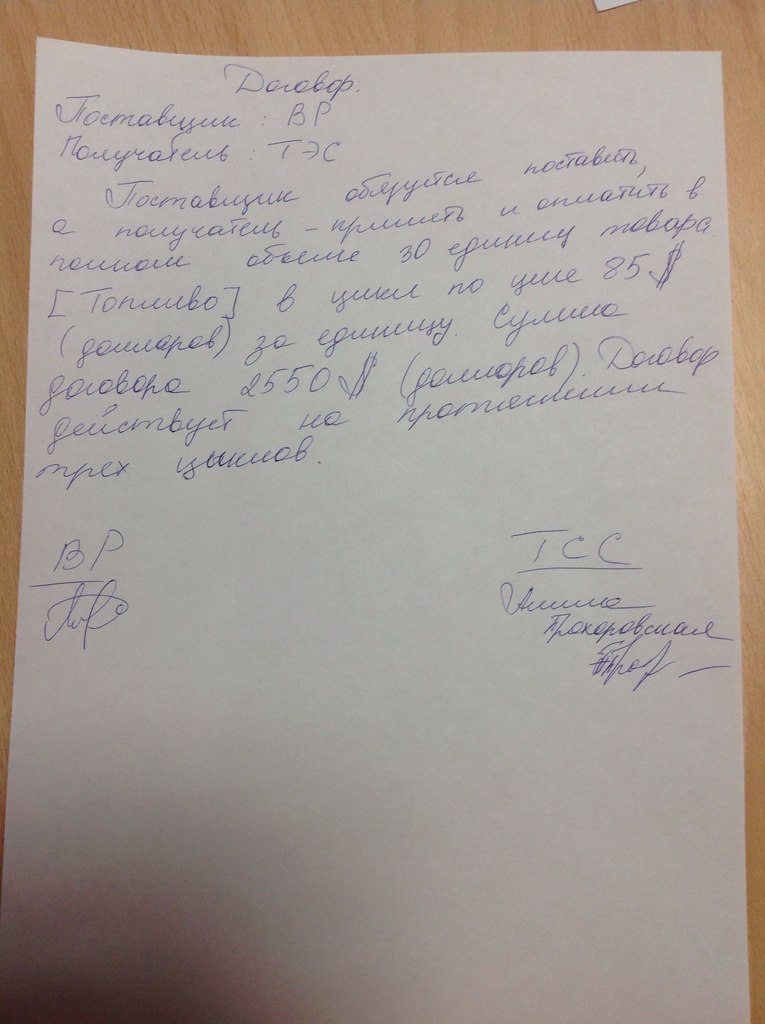 Договор.
Поставщик : ВР
Получатель : ТЭС
Поставщик обязуется поставить,
а получатель - принять и оплатить в
полном объеме 30 единиц товара
[Топливо] в цикл по цене 85 $
(долларов) за единицу. Сумма
договора 2550 $ (долларов). Договор
действует на протяжении
трех цыклов.
ВР
ТСС
Алина
Прохоровская